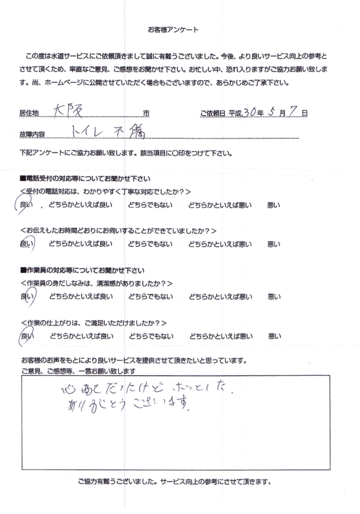 お客様アンケート
この度は水道サービスにご依頼頂きまして誠に有難うございました。今後、より良いサービス向上の参考と
させて頂くため、率直なご意見、ご感想をお聞かせ下さい。お忙しい中、恐れ入りますがご協力お願い致しま
す。尚、ホームページに公開させていただく場合もございますので、あらかじめご了承下さい。
居住地 大阪 市 ご依頼日 平成 30年 5月 7日
故障内容 トイレ 不備
下記アンケートにご協力お願い致します。該当項目に〇印をつけて下さい。
■電話受付の対応等についてお聞かせ下さい
<受付の電話対応は、わかりやすく丁寧な対応でしたか?>
良い . どちらかといえば良い どちらでもない どちらかといえば悪い 悪い
<お伝えしたお時間どおりにお伺いすることができていましたか?>
良い どちらかといえば良い どちらでもない どちらかといえば悪い 悪い
■作業員の対応等についてお聞かせ下さい
<作業員の身だしなみは、清潔感がありましたか?>
良い どちらかといえば良い どちらでもない どちらかといえば悪い 悪い
<作業の仕上がりは、ご満足いただけましたか?>
良い どちらかといえば良い どちらでもない どちらかといえば悪い 悪い
お客様のお声をもとにより良いサービスを提供させて頂きたいと思っています。
ご意見、ご感想等、一言お願い致します
心配だったけどホッとした.
ありがとうございます.
ご協力有難うございました。サービス向上の参考にさせて頂きます。